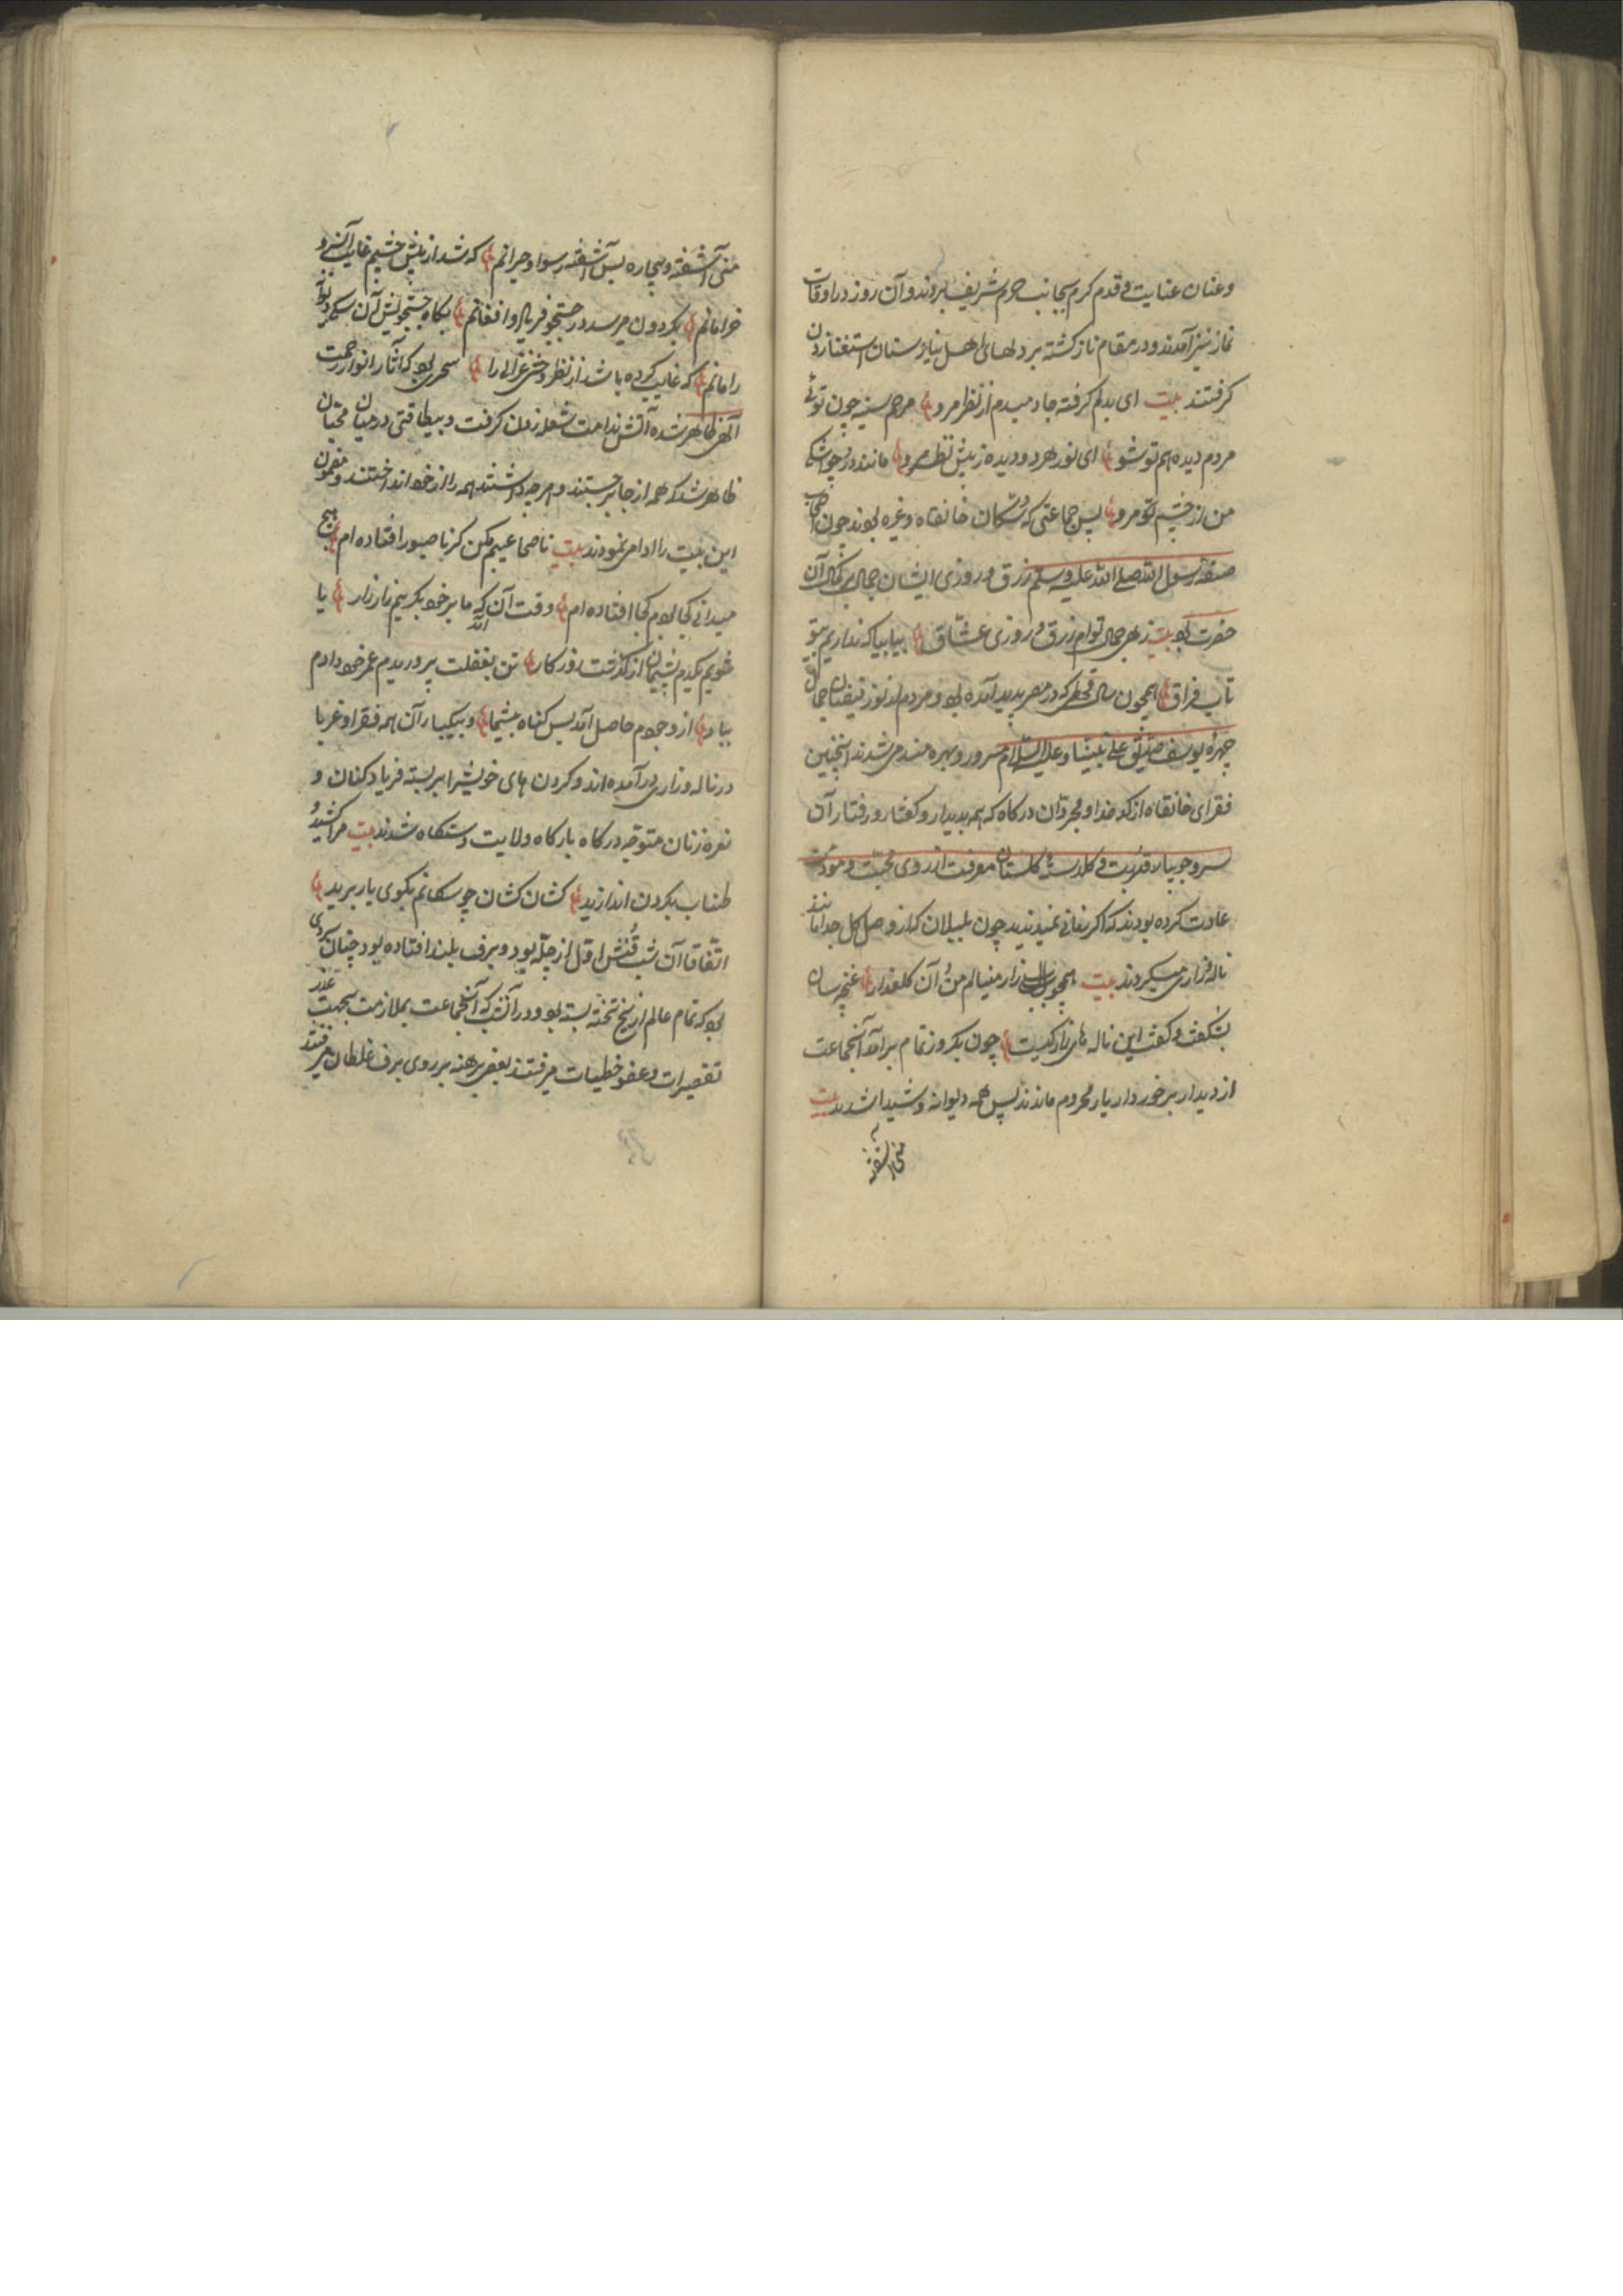 وعنان عنایت و قدم کرم بجانب حرم شریف بردند و آن روز در اوقات
نماز نیز آمدند و در مقام ناز کشته بر دلهای اهل نیاز سنان استغنا زدن
کرفتند بیت ای بدلم کرفته جا دمبدم از نظر مرو مرهم سینه چون توئی
مردم دیده هم تو شو ای نور هر دو دیده ز پیش نظر مرو مانند در چو اشک
من از چشم تو مرو پس جماعتی که خانقاه وغیره بودند چون اصحاب
صفه رسول الله صلی الله علیه وسلم رزق و روزی ایشان جمال بر کمال آن
حضرت بود بیت زهی جمال توام رزق و روزی عشاق بیا بیا که نداریم بیتو
تاب فراق همچون سال قحطی که در مصر پدید آمده بود و مردم از نور جمال
چهرهٔ یوسف صدیق علی نبینا وعلیه السلام مسرور و بهره مند می شدند اینچنین
فقرای خانقاه از کدخدا و مجردان درکاه که همه بدیدار و کفتار و رفتار آن
سرو جویبار قربت و کلدستهٔ کلستان معرفت از روی محبت و مودت
عادت کرده بودند که اکر زمانی نمیدیدند چون بلبلان کز وصل کل جدا مانند
ناله و زاری میکردند بیت همچو بلبل زار مینالم من آن کلعذار غنچه سان
بشکفت و کفت این ناله های زار کیست چون یکروز تمام برآمد آنجماعت
از دیدار برخوردار یار محروم ماندند پس همه دیوانه و شیدا شدند بیت
منی آشفته
منی آشفته و بیچاره بس آشفته رسوا و حیرانم که شد از پیش چشمم غایب آن سرو
خرامانم بکردون میرسد در جستجو فریاد و افغانم بکاه جستجویش آن سکی
را مانم که غایب کرده باشد از نظر وحشی غزالی را سحری بود که آثار انوار رحمت
الهی ظاهر شده آتش ندامت شعله زدن کرفت و بیطاقتی در میان محبان
ظاهر شد که همه از جا برجستند و هر چه داشتند همه را از خود انداختند و مضمون
این بیت را ادا می نمودند بیت ناصحا عیبم مکن کز ناصبور افتاده ام هیچ
میدانی کجا بودم کجا افتاده ام وقت آن آمد که ما بر خود بکرییم زار زار یا
شویم یکدم پشیمان از کذشت روزکار تن بغفلت پروریدم عمر خود دادم
بباد از وجودم حاصل آمد بس کناه بیشمار و بیکبار آن همه فقرا و غربا
در ناله و زاری درآمده اند و کردن های خویش را بر بسته فریاد کنان و
نعره زنان متوجه درکاه بارکاه ولایت دستکاه شدند بیت مرا کشید
طناب بکردن اندازید کشان کشان چو سکانم بکوی یار برید
اتفاقا آن شب قنش اول از چله بود و برف بلند افتاده بود چنان سردی
بود که تمام عالم از یخ تخته بسته بود و در آن شب که آنجماعت بملازمت بجهت عذر
تقصیرات و عفو خطیات میرفتند بعضی برهنه بر روی برف غلطان میرفتند